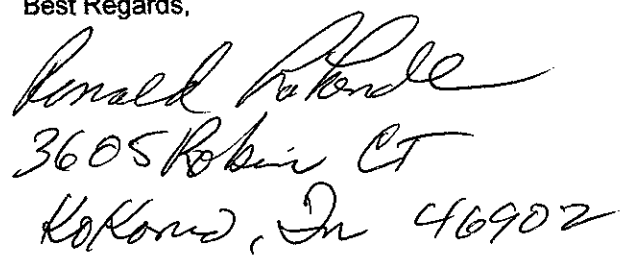 Best Regards,
Ronald
3605 Robin CT
Kokomo, In 46902